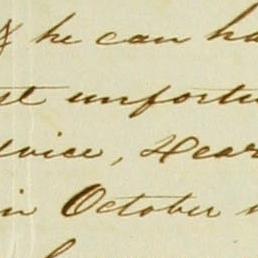 he can ha
st unfortu
dvice, Hear
in October